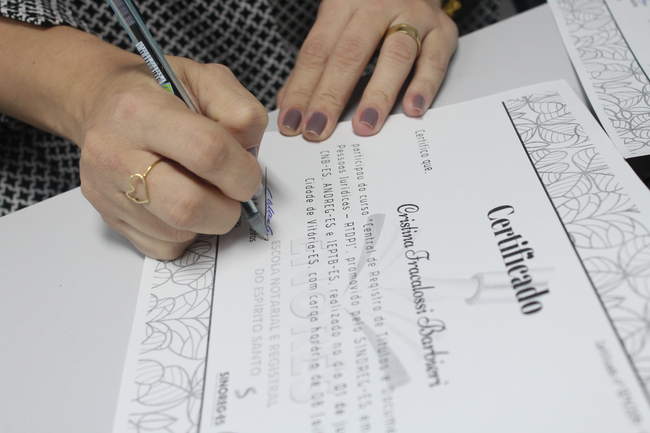 Certificado
Certifica que,
Cristina Fracalossi Barbieri
participou do curso "Central de Registro de Títulos e Documen
Pessoas Jurídicas – RTDPJ" promovido pelo SINOREG-ES em
CNB-ES, ANOREG-ES e IEPTB-ES, realizado no dia 01 de
Cidade de Vitória-ES, com carga horária de 08
ESCOLA NOTARIAL E REGISTRAL
DO ESPÍRITO SANTO
SINOREG-ES